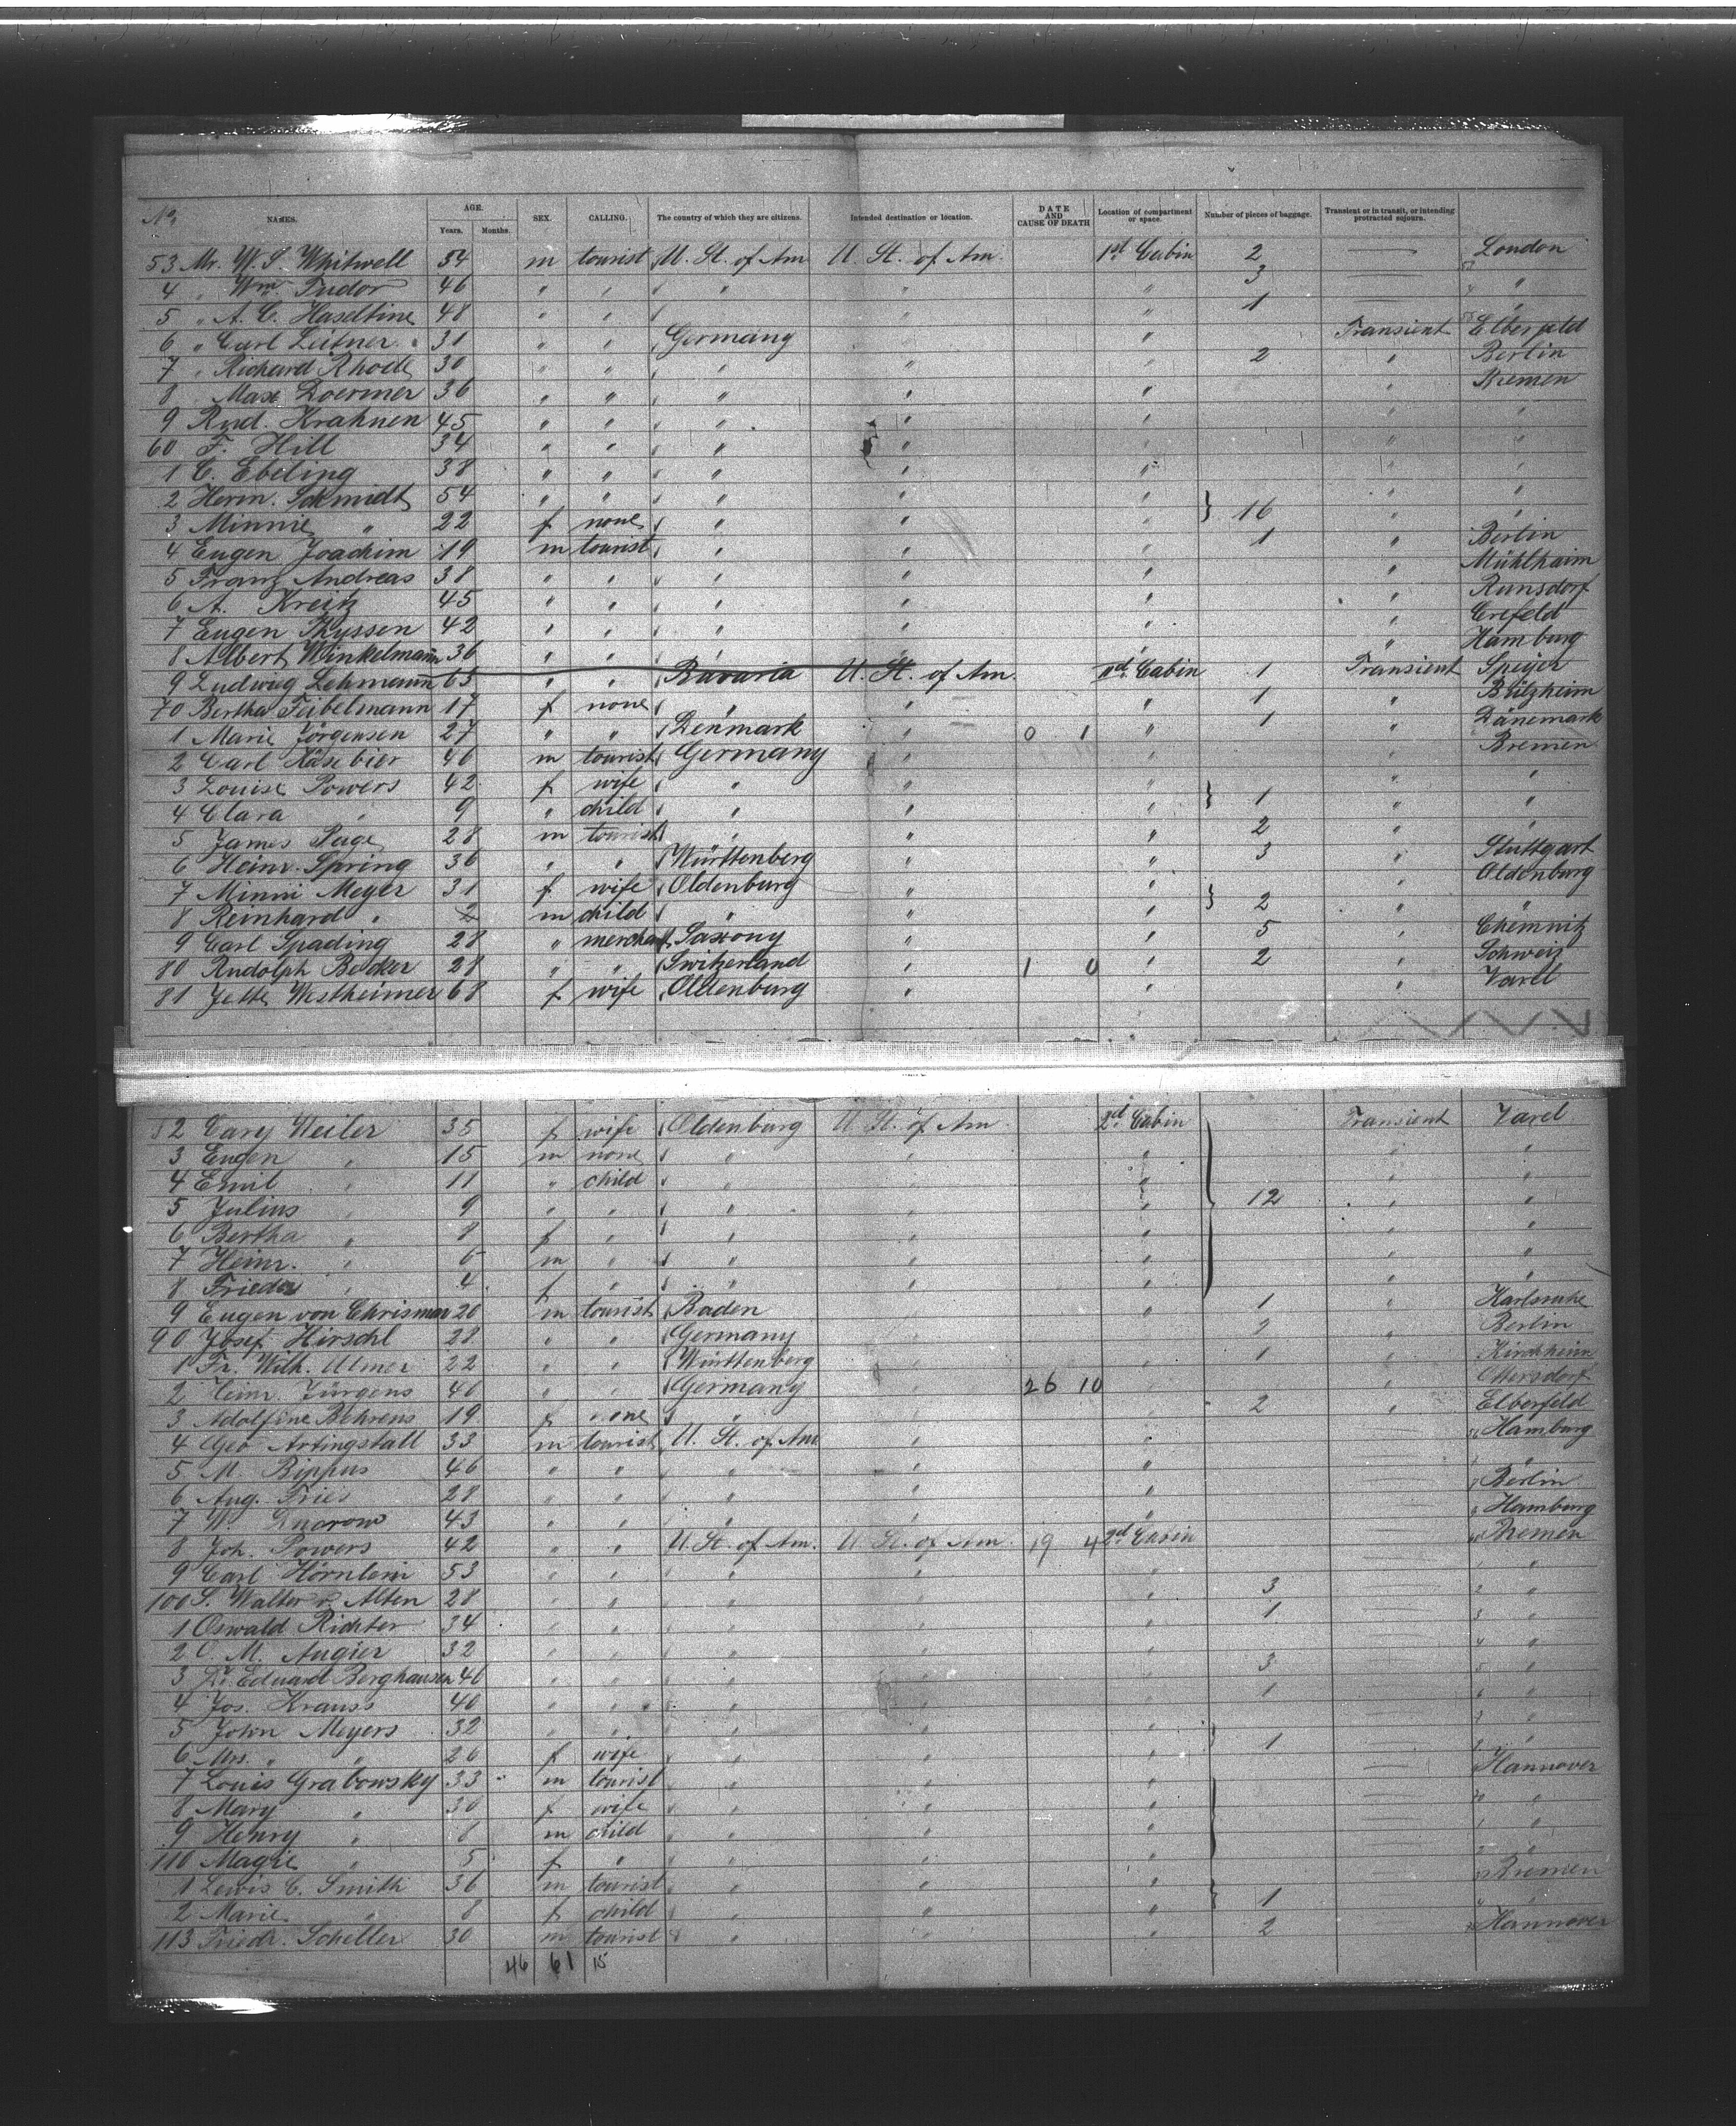 No. NAMES. AGE. Years. Months. SEX. CALLING. The country of which they are citizens. Intended destination or location. DATE AND CAUSE OF DEATH Location of compartment or space. Number of pieces of baggage. Transient or in transit, or intending protracted sojourn.
53 Mr. W. S. Whitwell 34 m tourist U. St. of Am U. St. of Am. 1st Cabin 2 — London
4 " Wm. Tudor 46 " " " " " 3 — "
5 " A. C. Haseltine 48 " " " " 1 — "
6 " Carl Leitner 31 " " Germany " Transient Elberfeld
7 " Richard Rhode 30 " " " " " 2 " Berlin
8 " Max Doermer 36 " " " " " Bremen
9 Rud. Krahnen 45 " " " " " " "
60 F. Hill 34 " " " " " " "
1 C. Ebeling 38 " " " " " " "
2 Herm. Schmidt 54 " " " " " " "
3 Minnie " 22 f none " " " } 16 " "
4 Eugen Joachim 19 m tourist " " " 1 " Berlin
5 Franz Andreas 38 " " " " " " Mühlhaim
6 A. Kreitz 45 " " " " " " Runsdorf
7 Eugen Thyssen 42 " " " " " " Crefeld
8 Albert Winkelmann 36 " " " " " " Hamburg
9 Ludwig Lehmann 63 " " Bavaria U. St. of Am. IId Cabin 1 Transient Speyer
70 Bertha Feibelmann 17 f none " " " 1 " Bülzheim
1 Marie Jörgensen 27 " " Denmark " 0 1 " 1 " Dänemark
2 Carl Käsebier 46 m tourist Germany " " " Bremen
3 Louise Powers 42 f wife " " " " "
4 Clara " 9 " child " " " } 1 " "
5 James Page 28 m tourist " " " 2 " "
6 Heinr. Spring 36 " " Württenberg " " 3 " Stuttgart
7 Minni Meyer 31 f wife Oldenburg " " " Oldenburg
8 Reinhard " 2 m child " " " } 2 " "
9 Carl Spading 28 " merchant Saxony " " 5 " Chemnitz
80 Rudolph Becker 28 " " Switzerland " 1 0 " 2 " Schweiz
81 Jette Westheimer 68 f wife Oldenburg " " Varel
82 Cary Weiler 35 f wife Oldenburg U. St. of Am 2d Cabin Transient Varel
3 Eugen " 15 m none " " " " "
4 Emil " 11 " child " " " " "
5 Julius " 9 " " " " " } 12 " "
6 Bertha " 8 f " " " " " "
7 Heinr. " 6 m " " " " " "
8 Frieda " 4 f " " " " " "
9 Eugen von Chrismar 20 m tourist Baden " " 1 " Karlsruhe
90 Josef Hirschl 28 " " Germany 2 " Berlin
1 Fr. Wilh. Ulmer 22 " " Württenberg " 1 " Kirchheim
2 Heinr. Jürgens 40 " " Germany " 26 10 " Ottersdorf
3 Adolfine Behrens 19 f none " " 2 " Elberfeld
4 Geo Artingstall 33 m tourist U. St. of Am " " — Hamburg
5 M. Bippus 46 " " " " " — "
6 Aug. Fries 28 " " " " " — Berlin
7 W. 43 " " " " " — Hamburg
8 Joh. Powers 42 " " U. St. of Am. U. St. of Am. 19 4 2d Cabin — Bremen
9 Carl Hörnlein 53 " " " " " — "
100 S. Walter v. Alten 28 " " " " " 3 — "
1 Oswald Richter 34 " " " " " 1 — "
2 C. M. Augier 32 " " " " " — "
3 Dr. Eduard Berghausen 46 " " " " " 3 — "
4 Jos. Krauss 40 " " " " " 1 — "
5 John Meyers 32 " " " " " — "
6 Mrs. " 26 f wife " " " } 1 — "
7 Louis Grabowsky 33 m tourist " " " — Hannover
8 Mary " 30 f wife " " " — "
9 Henry " 8 m child " " " — "
110 Magie " 5 f " " " " — "
1 Lewis C. Smith 36 m tourist " " " — Bremen
2 Marie " 8 f child " " " } 1 — "
113 Friedr. Scheller 30 m tourist " " " 2 — Hannover
46 61 15